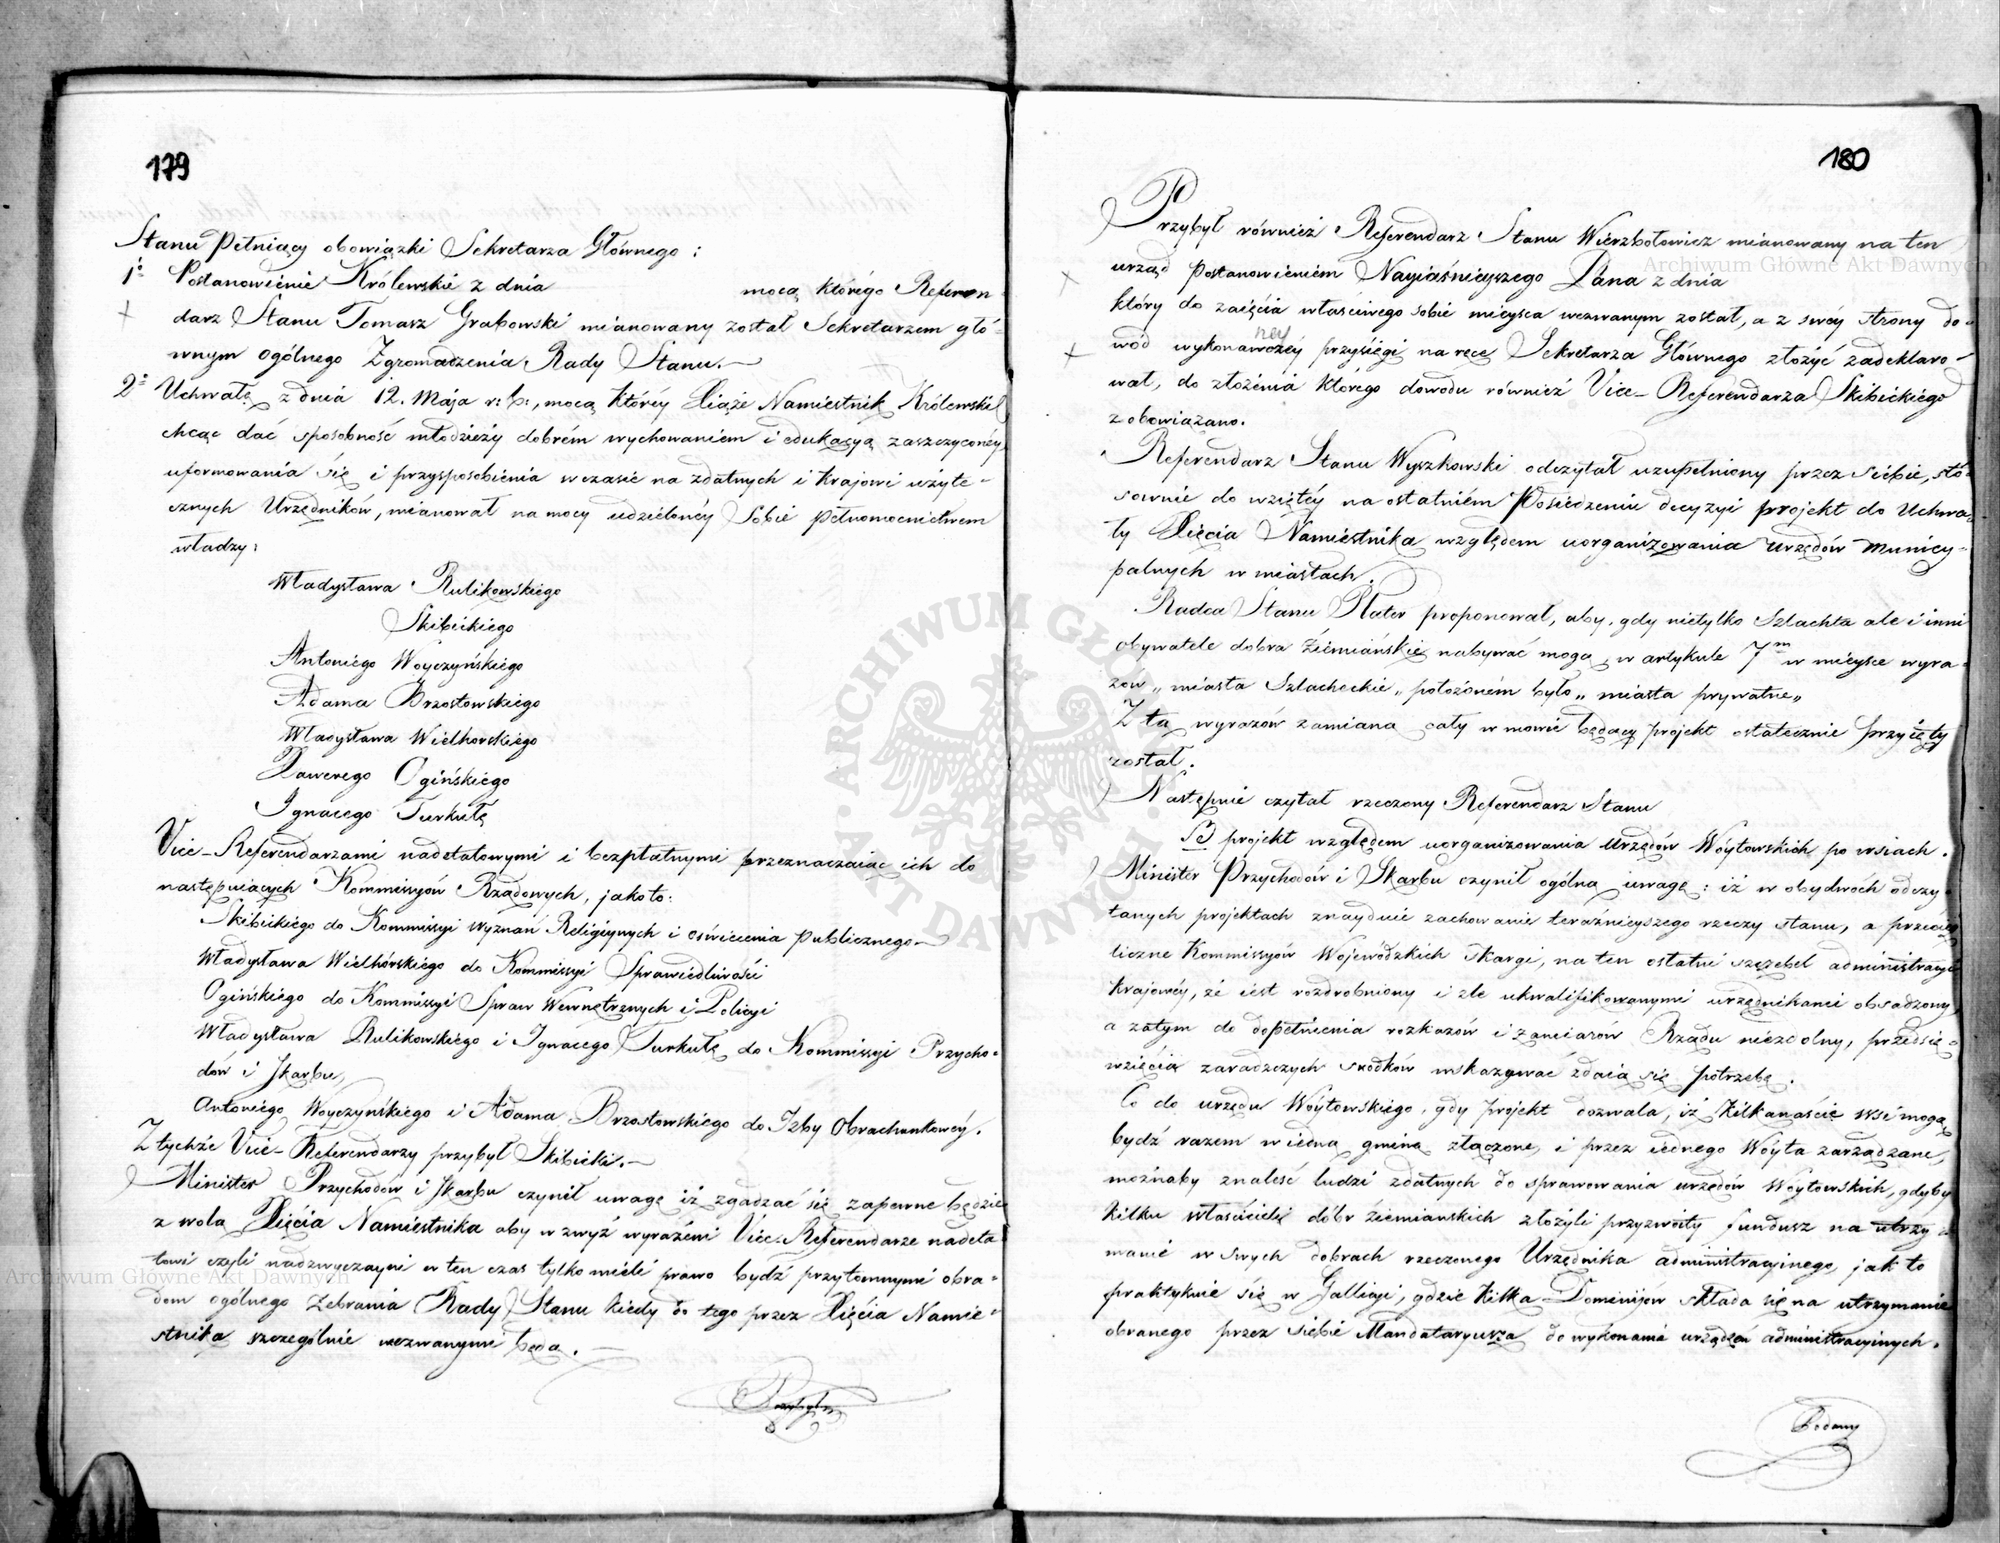 179
Stanu pełniący obowiązki Sekretarza Głównego:
1° Postanowienie Królewskie z dnia mocą którego Referen-
darz Stanu Tomasz Grabowski mianowany został Sekretarzem głó-
wnym ogólnego Zgromadzenia Rady Stanu.—
2° Uchwałę z dnia 12. Maja r: b:, mocą któréy Xiąże Namiestnik Królewski
chcąc dać sposobność młodzieży dobrém wychowaniem i edukacyą zaszczyconéy
uformowania się i przysposobienia wczasie na zdatnych i krajowi użyte-
cznych Urzędników, mianował na mocy udzielonéy Sobie pełnomocnictwem
władzy:
Władysława Rulikowskiego
Skibickiego
Antoniego Woyczyńskiego
Adama Brzostowskiego
Władysława Wielhorskiego
Xawerego Ogińskiego
Ignacego Turkułłę
Vice-Referendarzami nadetatowymi i bezpłatnymi przeznaczaiąc ich do
następuiących Kommissyów Rządowych, jako to:
Skibickiego do Kommissyi Wyznań Religiynych i oświecenia publicznego—
Władysława Wielhórskiego do Kommissyi Sprawiedliwości
Ogińskiego do Kommissyi Spraw Wewnętrznych i Policyi
Władysława Rulikowskiego i Ignacego Turkułłę do Kommissyi Przycho-
dów i Skarbu,
Antoniego Woyczyńskiego i Adama Brzostowskiego do Izby Obrachunkowéy.
Z tychże Vice-Referendarzy przybył Skibicki.—
Minister Przychodów i Skarbu czynił uwagę iż zgadzać się zapewne będzie
z wolą Xięcia Namiestnika aby wzwyż wyrażeni Vice-Referendarze nadeta
towi czyli nadzwyczayni w ten czas tylko mieli prawo bydź przytomnymi obra-
dom ogólnego Zebrania Rady Stanu kiedy do tego przez Xięcia Namie-
stnika szczególnie wezwanymi będą.—
180
Przybył również Referendarz Stanu Wierzbołowicz mianowany na ten
urząd postanowieniem Nayiaśnieyszego Pana z dnia
który do zaięcia właściwego sobie mieysca wezwanym został, a z swéy strony do-
wód wykonawczéy przysięgi na ręce Sekretarza Głównego złożyć zadeklaro-
ney
wał, do złożenia którego dowodu również Vice-Referendarza Skibickiego
zobowiązano.
Referendarz Stanu Wyszkowski odczytał uzupełniony przez siebie, sto-
sownie do wziętéy na ostatniém Posiedzeniu decyzyi projekt do Uchwa-
ły Xięcia Namiestnika względem uorganizowania urzędów municy-
palnych w miastach.
Radca Stanu Plater proponował, aby, gdy nietylko Szlachta ale i inni
obywatele dobra Ziemiańskie nabywać mogą, w artykule 7m w mieysce wyra-
zow „miasta Szlacheckie„ położoném było „miasta prywatne„
Z tą wyrazów zamianą cały w mowie będący projekt ostatecznie przyięty
został.
Następnie czytał rzeczony Referendarz Stanu
B projekt względem uorganizowania Urzędów Wóytowskich po wsiach.
Minister Przychodów i Skarbu czynił ogólną uwagę: iż w obydwóch odczy-
tanych projektach znayduie zachowanie teraźnieyszego rzeczy stanu, a przecież
liczne Kommissyów Wojewódzkich skargi, na ten ostatni szczebel administracyi
krajowéy, że iest rozdrobniony i źle ukwalifikowanymi urzędnikami obsadzony,
a zatym do dopełnienia rozkazów i zamiarów Rządu niezdolny, przedsię-
wzięcia zaradczych srodków wskazywać zdaią się potrzebę.
Co do urzędu Wóytowskiego, gdy projekt dozwala, iż kilkanaście wsi mogą
bydź razem w iedną gminę złączone, i przez iednego Wóyta zarządzane,
możnaby znaleść ludzi zdatnych do sprawowania urzędów Wóytowskich, gdyby
kilku właścicieli dóbr ziemianskich złożyli przyzwoity fundusz na utrzy-
manie w swych dobrach rzeczonego Urzędnika administracyinego, jak to
praktykuie się w Gallicyi, gdzie kilka Dominijow składa się na utrzymanie
obranego przez siebie Mandataryusza do wykonania urządzeń administracyinych.
Podany
Archiwum Główne Akt Dawnych
Archiwum Główne Akt Dawnych
ARCHIWUM GŁÓWNE AKT DAWNYCH